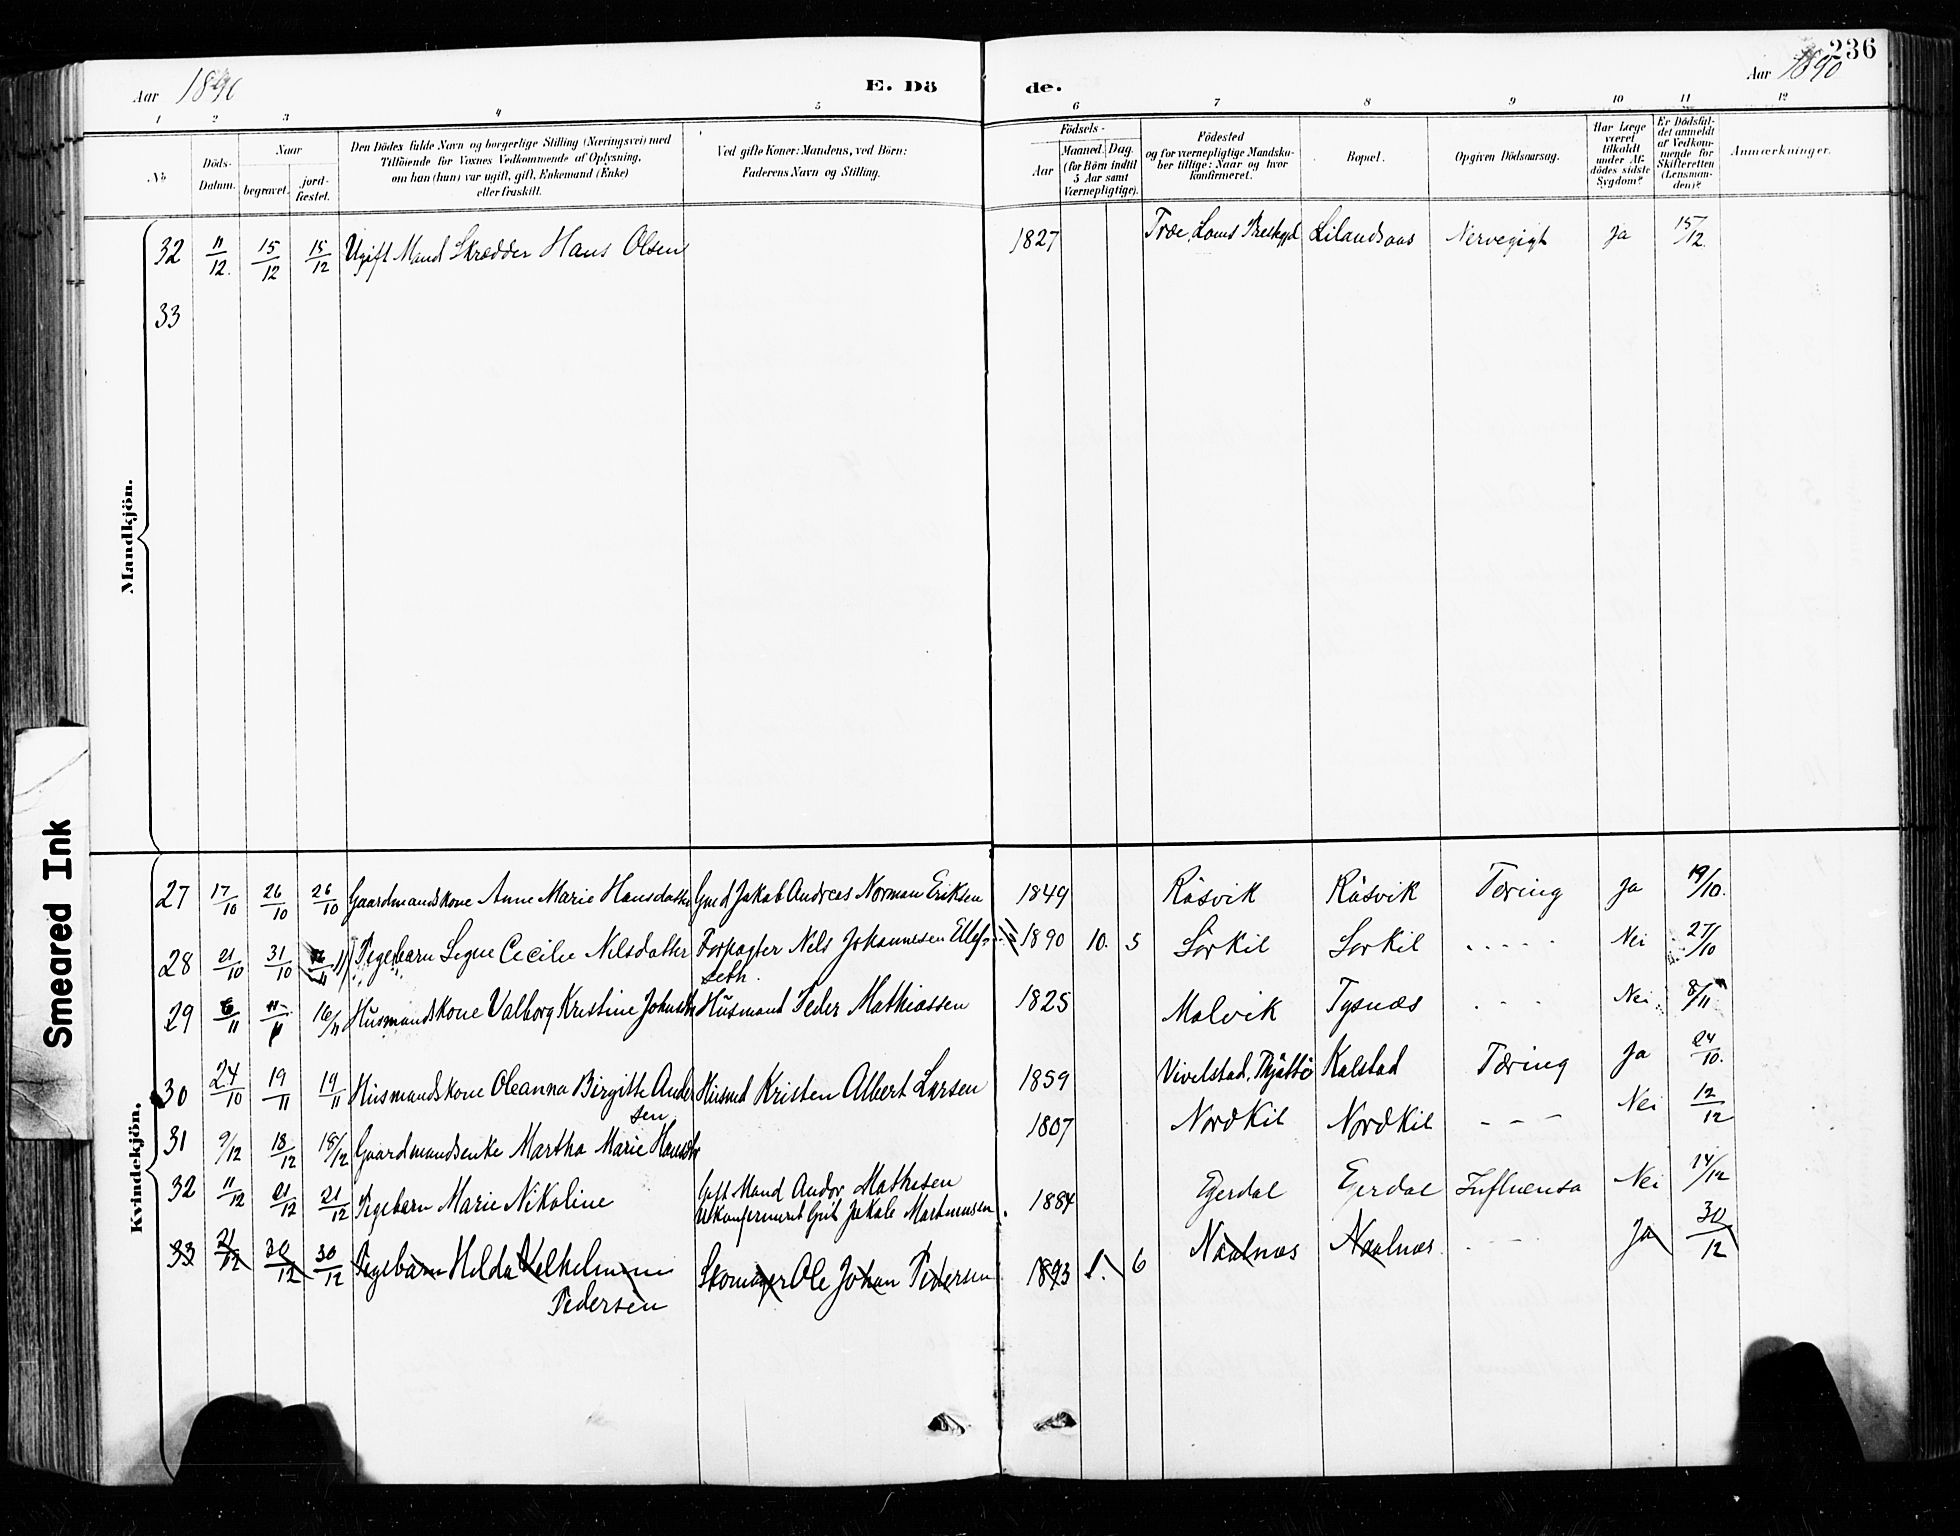 236
Aar 1890
E. Dö
de.
Aar 1890
1 2 3 4 5 6 7 8 9 10 11 12
No
Döds-
Datum.
Naar
begravet.
jord-
fæstet.
Den Dödes fulde Navn og borgerlige Stilling (Næringsvei) med
Tilföiende for Voxnes Vedkommende af Oplysning,
om han (hun) var ugift, gift, Enkemand (Enke)
eller fraskilt.
Ved gifte Koner: Mandens, ved Börn:
Faderens Navn og Stilling.
Födsels-
Aar
Maaned. Dag.
(for Börn indtil
5 Aar samt
Værnepligtige).
Födested
og for værnepligtige Mandska-
ber tillige: Naar og hvor
konfirmeret.
Bopæl.
Opgiven Dödsaarsag.
Har Læge
været
tilkaldt
under Af-
dödes sidste
Sygdom?
Er Dödsfal-
det anmeldt
af Vedkom-
mende for
Skifteretten
(Lensman-
den)?
Anmærkninger.
Mandkjön.
32 11/12. 15/12 15/12 Ugift Mand Skrædder Hans Olsen 1827 Træe, Loms Lilandsaas Nervegigt Ja 15/12.
33
Smeared Ink
Kvindekjön.
27 17/10 26/10 26/10 Gaardmandskone Anne Marie Hansdatter Gmd Jakob Andreas Norman Eriksen 1849 Råsvik Råsvik Tæring Ja 19/10.
28 21/10 31/10 Pigebarn Signe Cecilie Nilsdatter Forpagter Nils Johannesen Ellef- 1890 10. 5 Sörkil Sorkil - - - - - Nei 27/10
seth.
29 6/11 16/11 Husmandskone Valborg Kristine Husmand Peder Mathiassen 1825 Malvik Tysnæs - - - Nei 8/11
30 24/10 19/11 19/11 Husmandskone Oleanna Birgitte Ander Husmd Kristen Albert Larsen 1859 Vivelstad, Thjøttø Kalstad Tæring Ja 24/10.
sen
31 9/12 18/12 18/12 Gaardmandsenke Martha Marie 1807 Nordkil Nordkil - - - Nei 12/12
32 11/12 21/12 21/12 Pigebarn Marie Nikoline Gift Mand Andor Mathisen 1884 Egerdal Egerdal Influensa Nei 14/12
33 21/12 30/12 30/12 Pigebarn Hilda Vilhelmine Skomager Ole Johan Pedersen 1893 1. 6 Naalnæs Naalnæs. - - - Ja 30/12
Pedersen